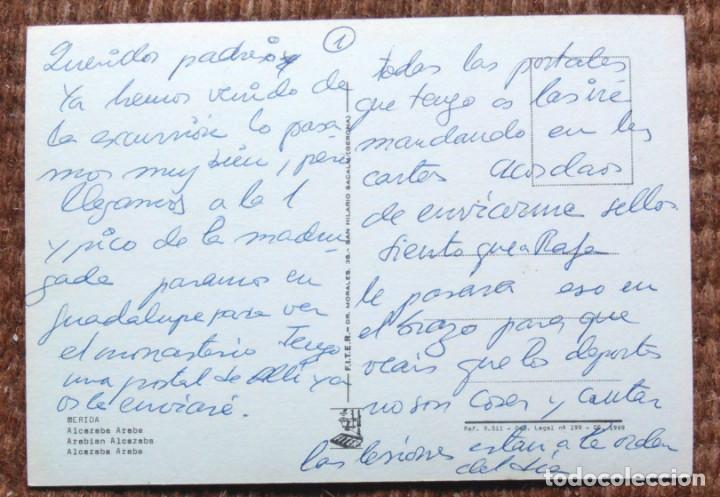 1
Queridos padres
ya hemos venido de
la excursión lo pasa
mos muy bien, pero
llegamos a la 1
y pico de la madru
gada paramos en
guadalupe para ver
el monasterio Tengo
una postal de alli ya
os la enviaré.
MERIDA
Alcazaba Arabe
Arabian Alcazaba
Alcazaba Arabe
F.I.T.E.R. - DR. MORALES, 38. - SAN HILARIO SACALM (GERONA)
todas las postales
que tengo os las iré
mandando en las
cartas Acordaos
de enviarme sellos
siento que a Rafa
le pasara eso en
el brazo para que
veais que los deportes
no son coser y cantar
las lesiones estan a la orden
del día
Legal nº 199
todocoleccion.net